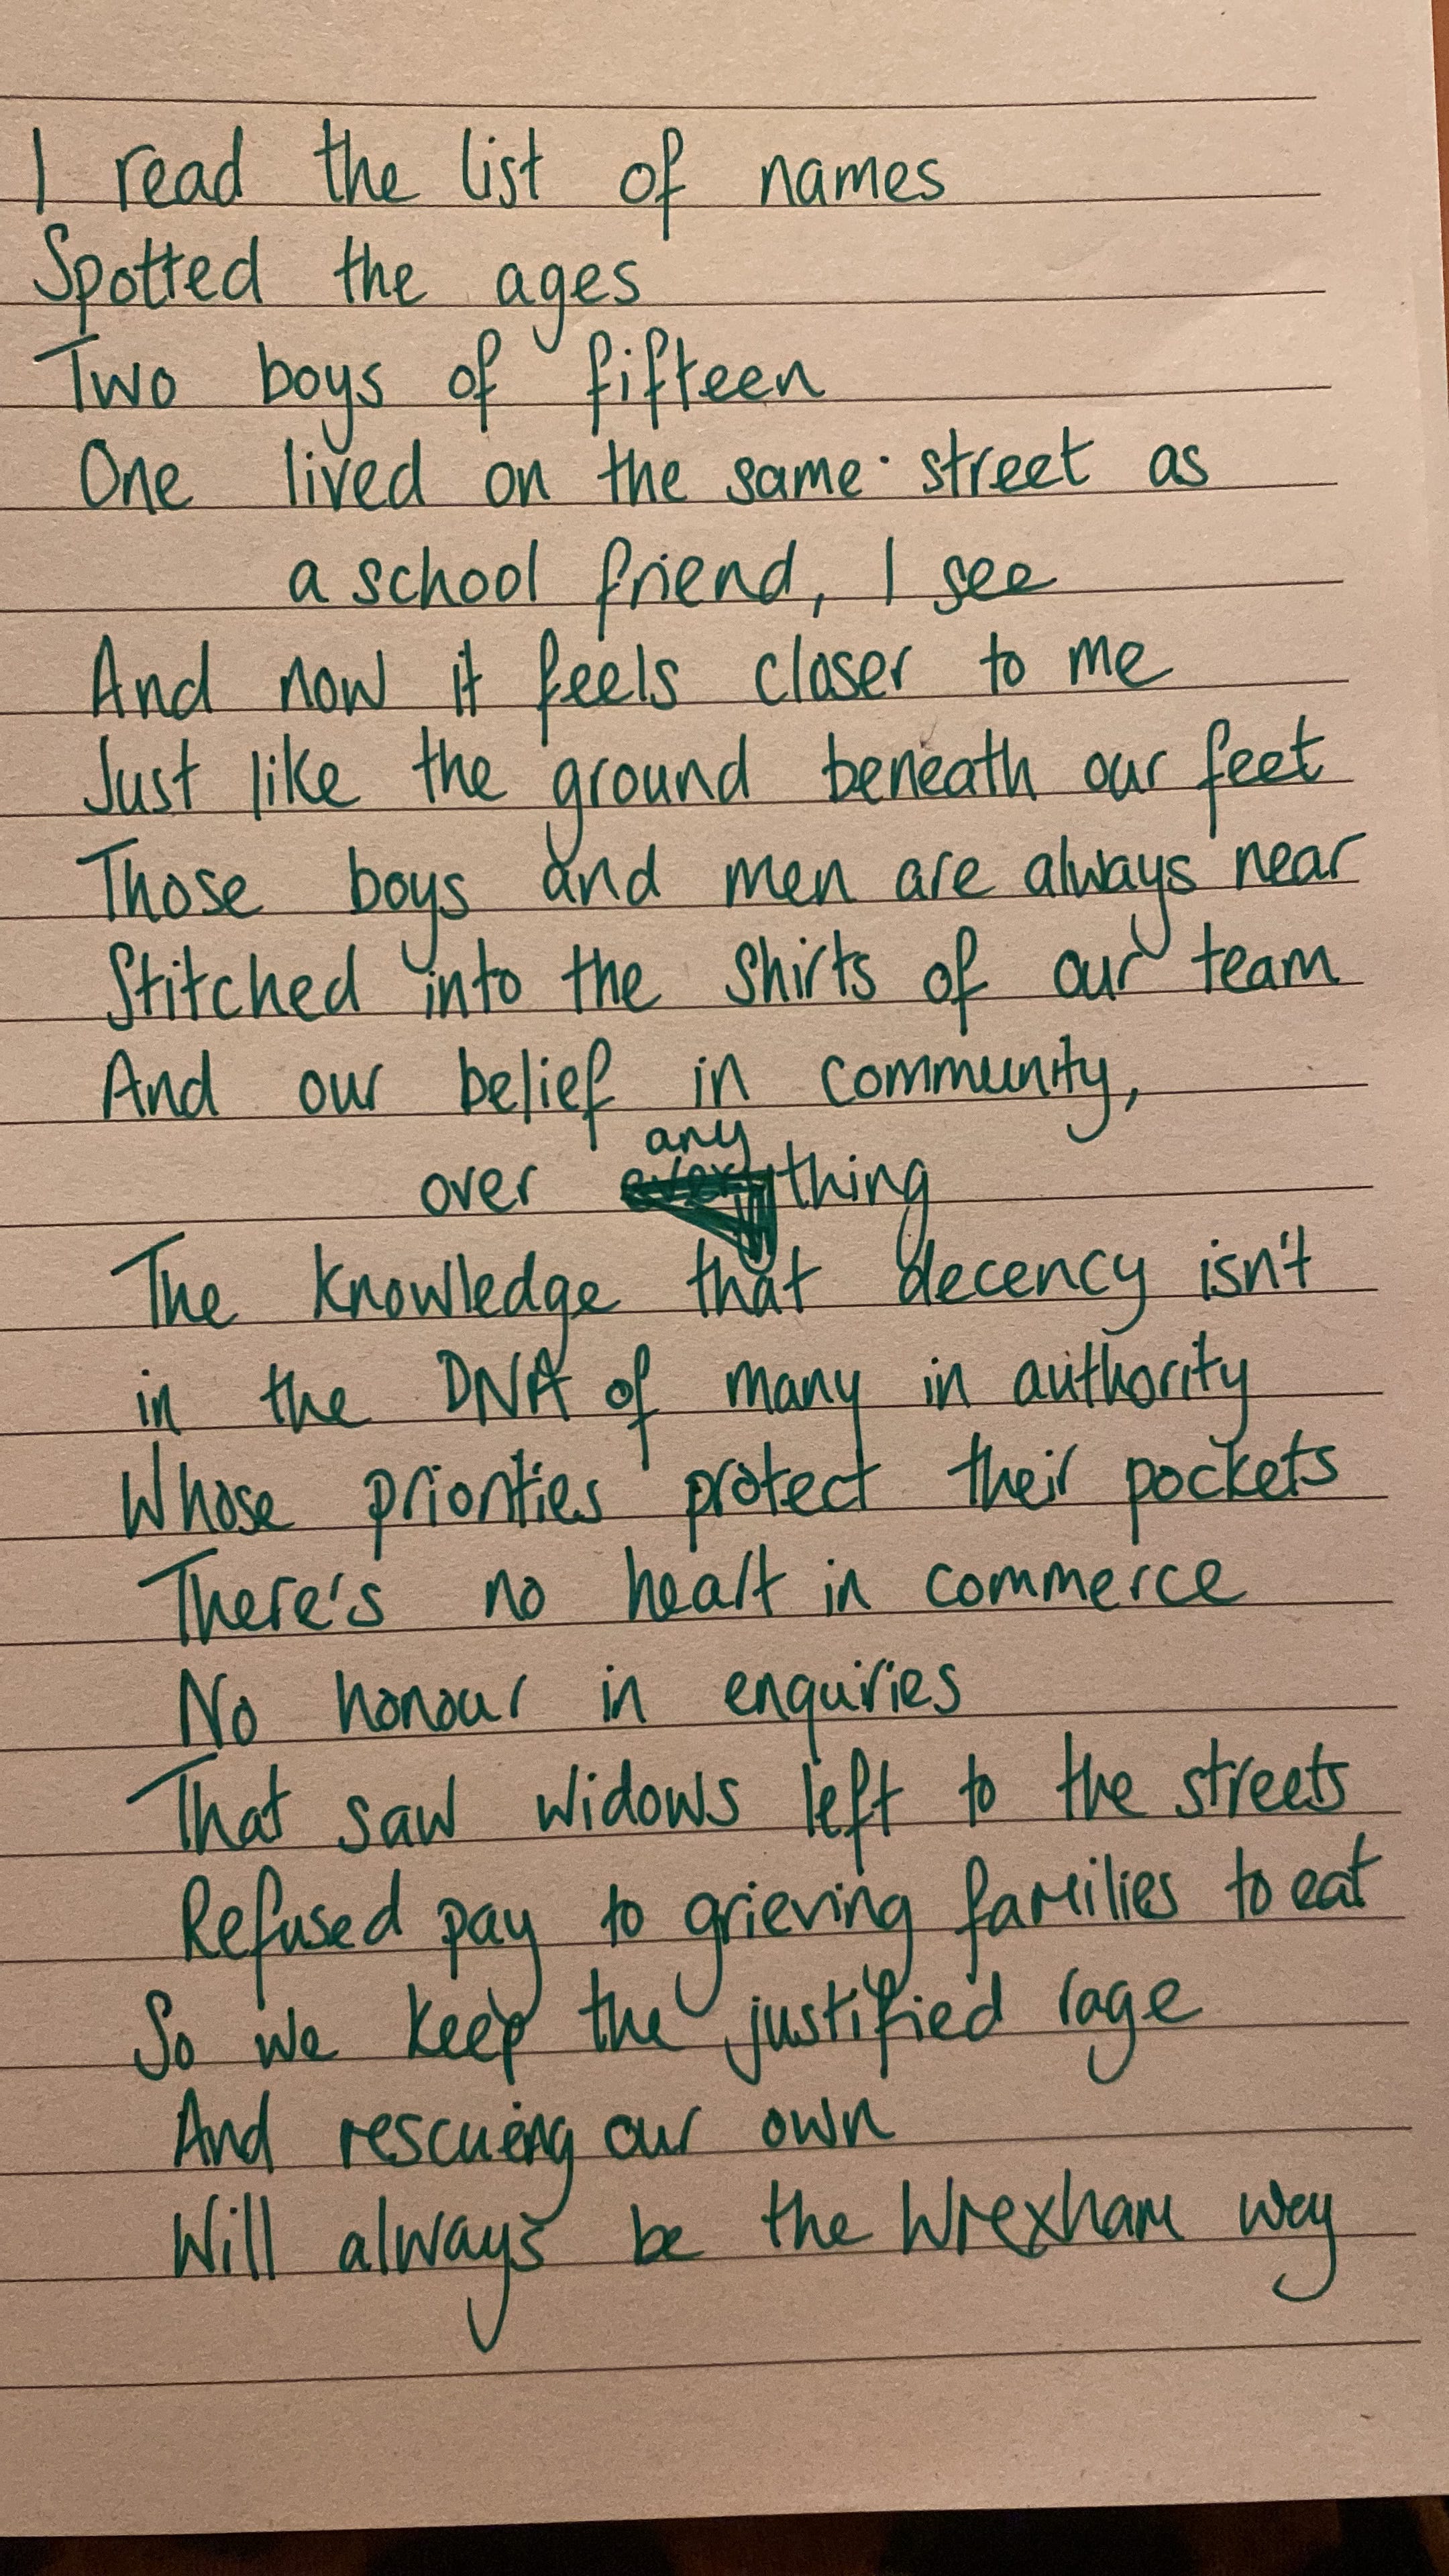 I read the list of names
Spotted the ages
Two boys of fifteen
One lived on the same street as
a school friend, I see
And now it feels closer to me
Just like the ground beneath our feet
Those boys and men are always near
Stitched into the shirts of our team
And our belief in community,
over anything
The knowledge that decency isn't
in the DNA of many in authority
Whose priorities protect their pockets
There's no heart in commerce
No honour in enquiries
That saw widows left to the streets
Refused pay to grieving families to eat
So we keep the justified rage
And rescueing our own
Will always be the Wrexham way